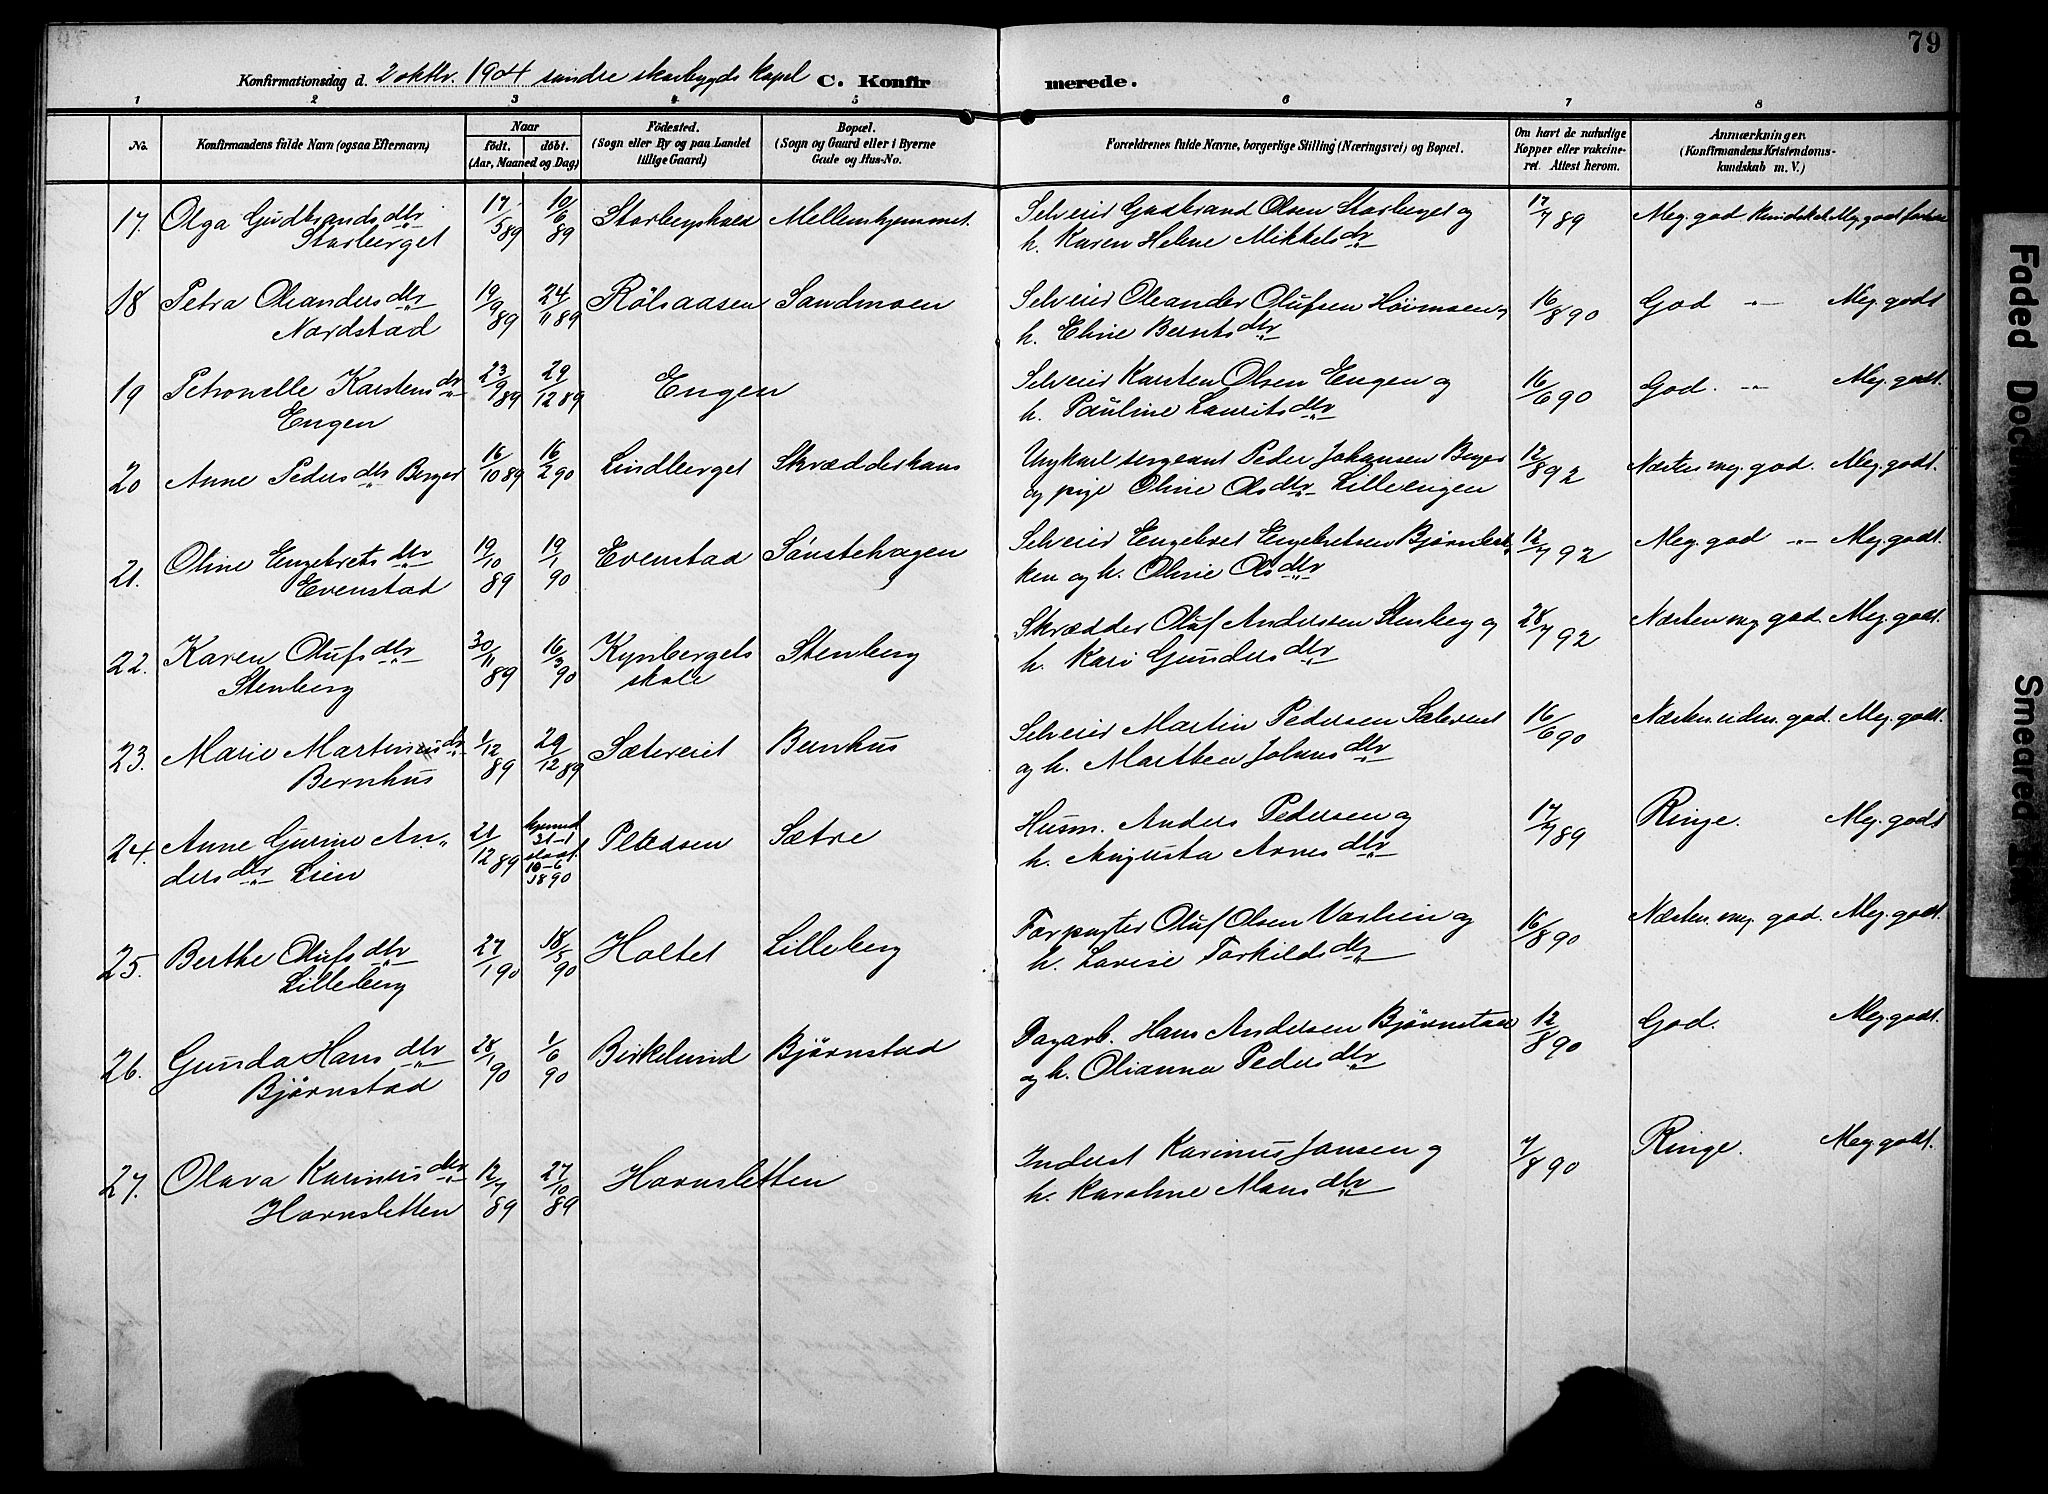 79
Konfirmationsdag d. 2 oktbr. 1904 søndre skarbygds kapel C. Konfirmerede.
1 2 3 4 5 6 7 8
No. Konfirmandens fulde Navn (ogsaa Efternavn) Naar født. døbt. (Aar, Maaned og Dag) Fødested. (Sogn eller By og paa Landet tillige Gaard) Bopæl. (Sogn og Gaard eller i Byerne Gade og Hus-No. Forældrenes fulde Navne, borgerlige Stilling (Næringsvei) og Bopæl. Om havt de naturlige Kopper eller vakcineret. Attest herom. Anmærkninger. (Konfirmandens Kristendomskundskab m. V.)
17. Olga Gudbrandsdtr 17/5 89 10/6 89 Storbergskvea Mellemhjemmet. Selveier Gudbrand Olsen Storberget og 17/7 89 Meg. god kundskab Meg. godt forhold
Storberget h. Karen Helene Mikkelsdtr
18 Petra Oleandersdtr 19/9 89 24/11 89 Rølsaasen Sandmoen Selveier Oleander Olufsen Høimoen og 16/8 90 God " Meg. godt
Nordstad h. Eline Berntsdtr
19 Petronelle Karstensdtr 23/9 89 29/12 89 Engen Selveier Karsten Olsen Engen og 16/6 90 God. " Meg. godt.
Engen h. Pauline Lauritsdtr
20 Anne Pedersdtr Berger 16/10 89 16/2 90 Lindberget Skrædderhaus Ungkarl sergeant Peder Johansen Berger 12/8 92 Næsten meg. god. Meg. godt.
og pige Oline Olsdtr Lilleengen
21. Oline Engebretsdtr 19/10 89 19/1 90 Evenstad Sønstehagen Selveier Engebret Engebretsen Bjørnbek- 12/7 92 Meg. god " Meg. godt.
Evenstad ken og h. Oline Olsdtr
22. Karen Olufsdtr 30/11 89 16/3 90 Kynbergets skole Stenberg Skrædder Oluf Andersen Stenberg og 28/7 92 Næsten meg god. Meg. godt.
Stenberg h. Kari Gundersdtr
23. Marie Martinusdtr 1/12 89 29/12 89 Sætereiet Bernhus Selveier Martin Pedersen Sætereiet 16/6 90 Næsten uden. god. Meg. godt.
Bernhus og h. Marthea Johnsdtr
24. Anne Gurine An- 21/12 89 hjemmed. 31-1 stadf. 10-6 1890 Pladsen Sætre Husm. Anders Pedersen og 17/7 89 Ringe. Meg. godt
dersdtr Lien h. Augusta Arnesdtr
25. Berthe Olufsdtr 27/1 90 18/5 90 Holtet Lilleberg Forpagter Oluf Olsen Vaslien og 16/8 90 Næsten meg. god. Meg. godt.
Lilleberg h. Lovise Torkildsdtr
26. Gunda Hansdtr 28/1 90 1/6 90 Birkelund Bjørnstad Dagarb. Hans Andersen Bjørnstad 12/8 90 God. Meg. godt.
Bjørnstad og h. Olianna Pedersdtr
27. Olava Karinusdtr 12/7 89 27/10 89 Hornsletten Inderst Karinus Jansen og 7/8 90 Ringe. Meg. godt.
Hornsletten h. Karoline Mansdtr
Faded Docum
Smeared